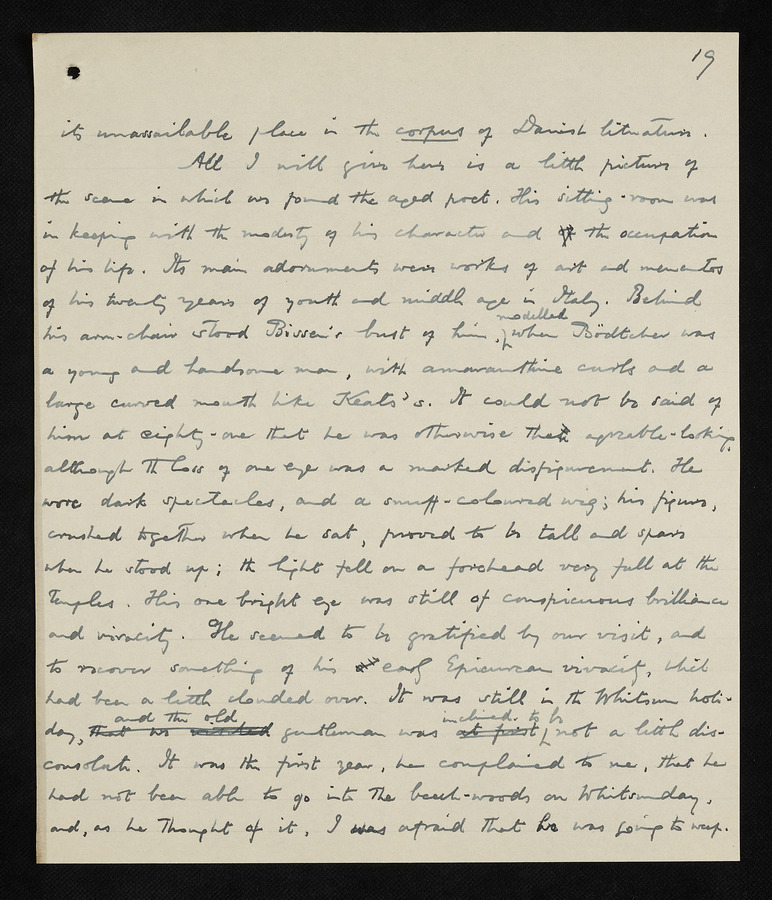 19
its unassailable place in the corpus of Danish literature.
All I will give here is a little picture of
the scene in which we found the aged poet. His sitting-room was
in keeping with the modesty of his character and the occupation
of his life. Its main adornments were works of art and mementos
of his twenty years of youth and middle age in Italy. Behind
his arm-chair stood Bissen's bust of him, modelled when Bödtcher was
a young and handsome man, with amaranthine curls and a
large curved mouth like Keats's. It could not be said of
him at eighty-one that he was otherwise than agreable-looking,
although the loss of one eye was a marked disfigurement. He
wore dark spectacles, and a snuff-coloured wig; his figure,
crushed together when he sat, proved to be tall and spare
when he stood up; the light fell on a forehead very full at the
temples. His one bright eye was still of conspicuous brilliance
and vivacity. He seemed to be gratified by our visit, and
to recover something of his early Epicurean vivacity, which
had been a little clouded over. It was still in the Whitsun holi-
day, and the old gentleman was inclined to be not a little dis-
consolate. It was the first year, he complained to me, that he
had not been able to go into the beech-woods on Whitsunday,
and, as he thought of it, I was afraid that he was going to weep.